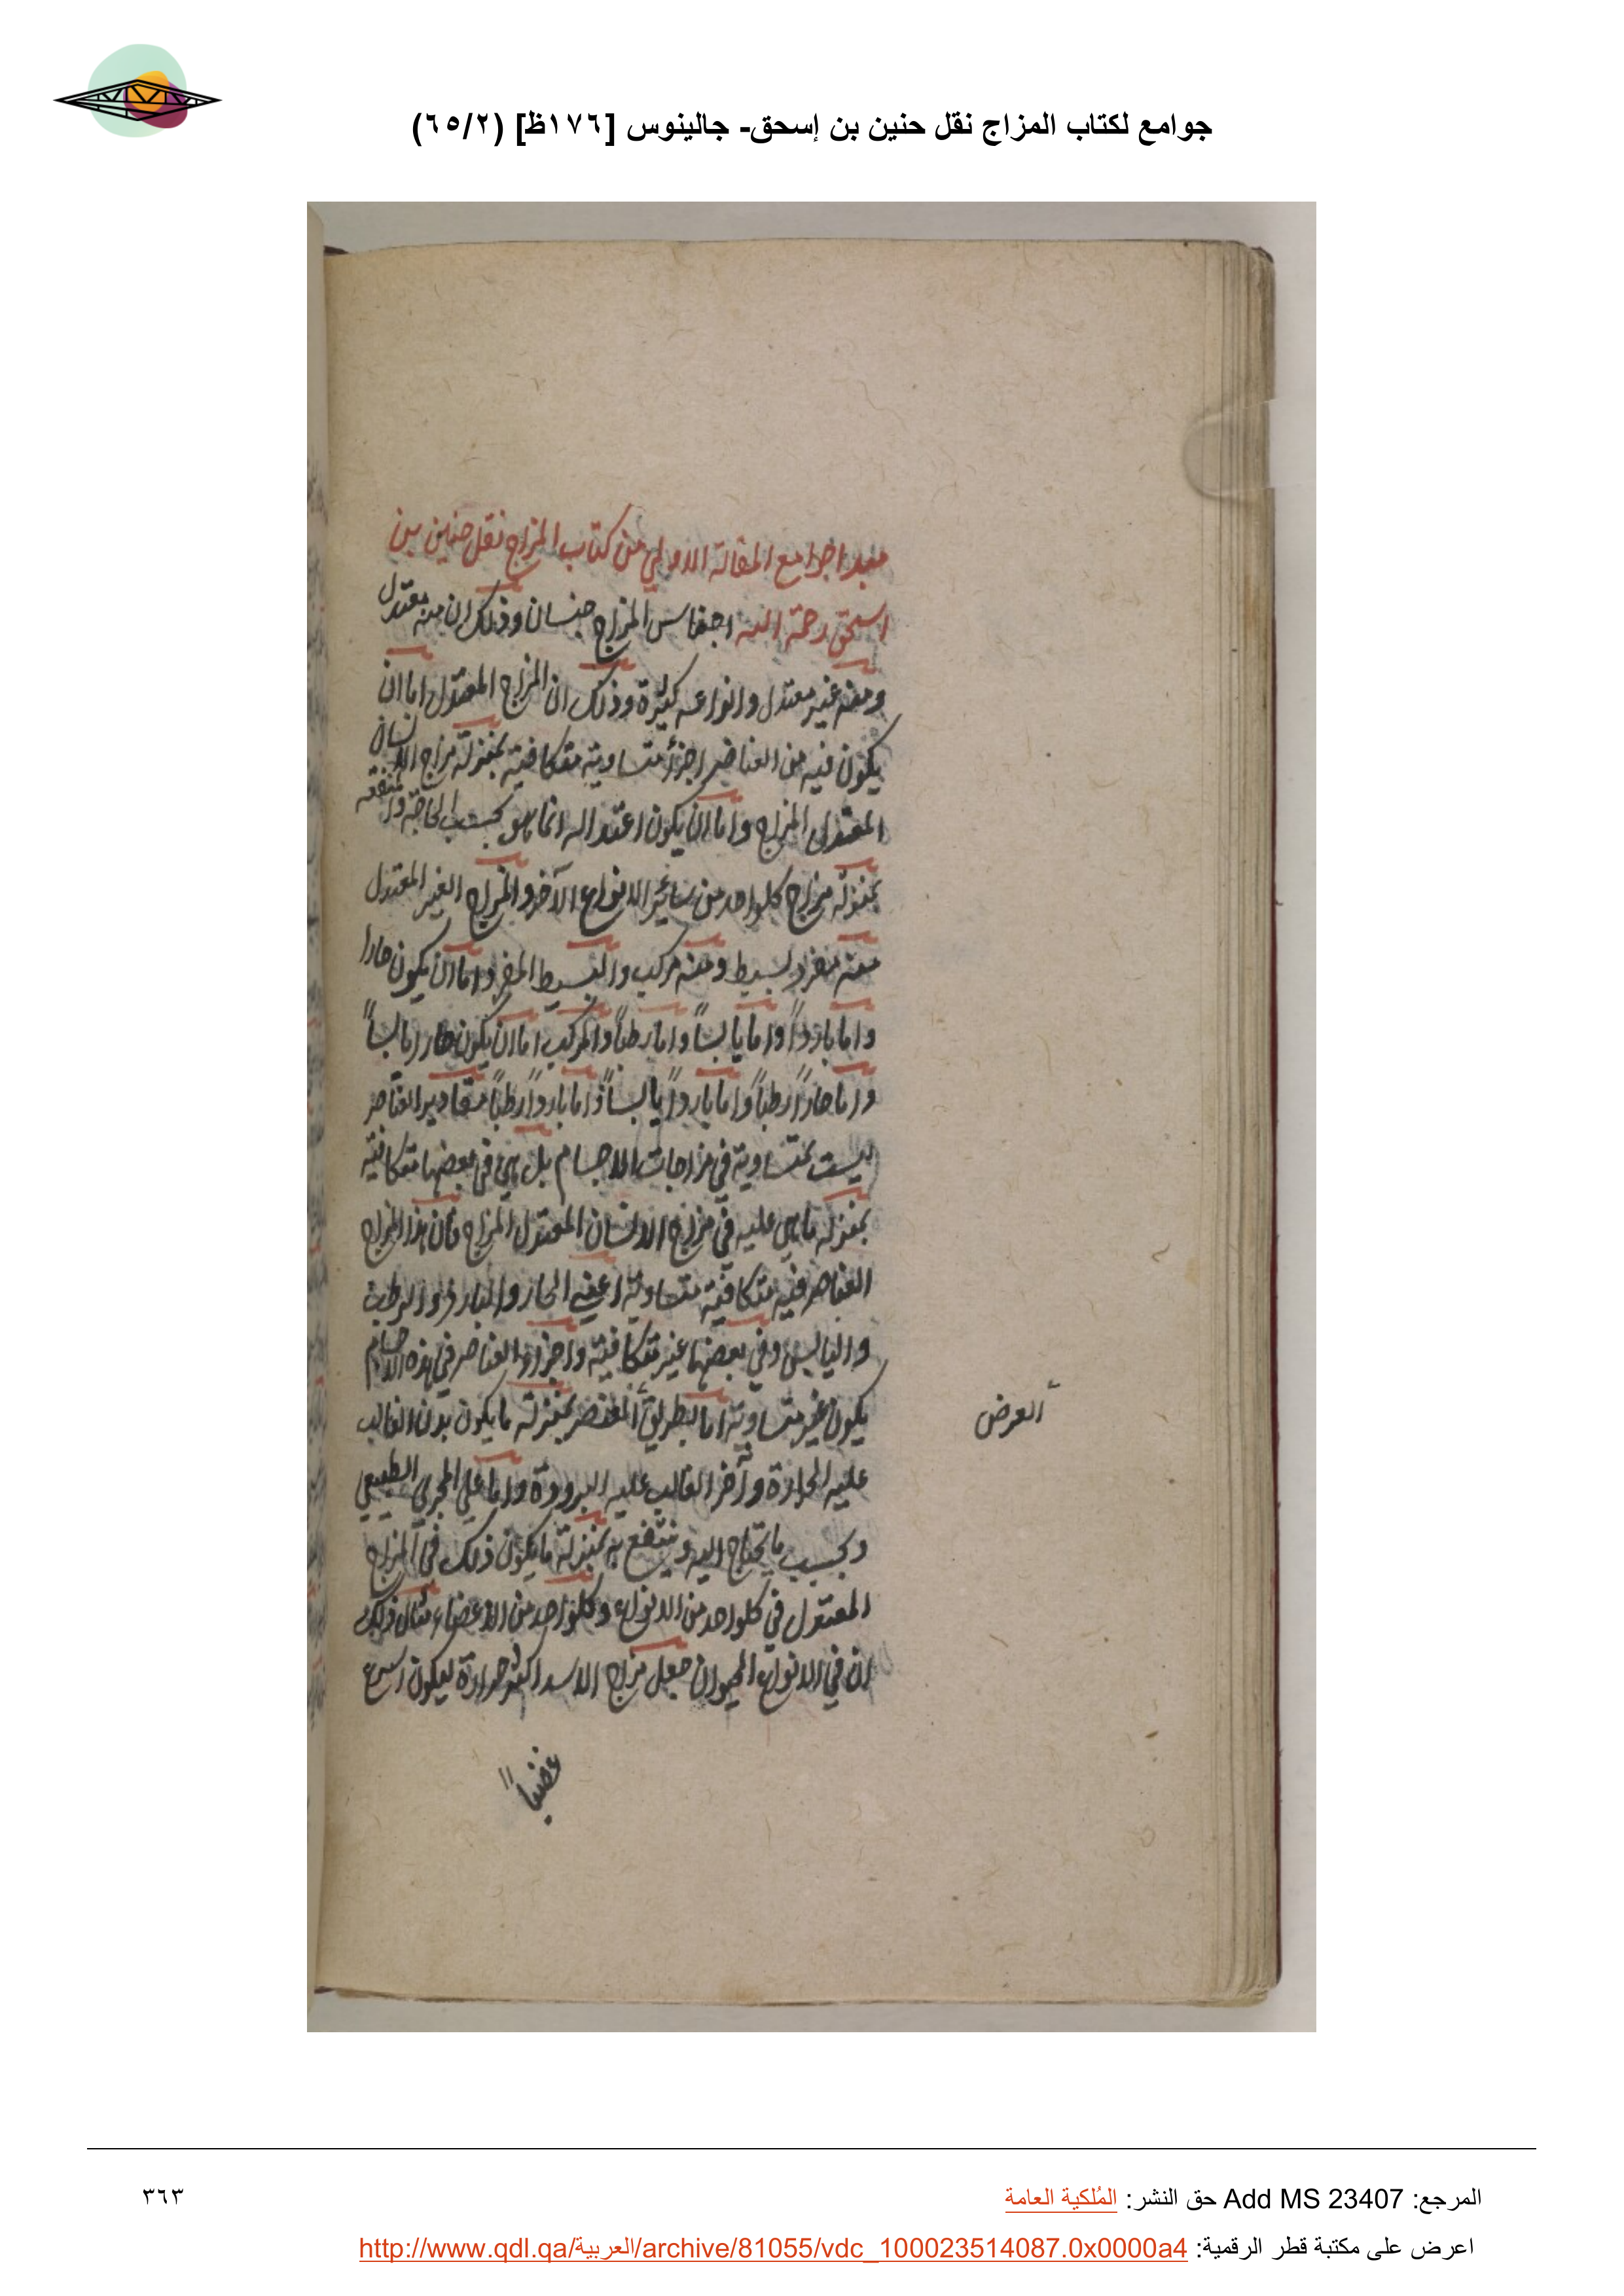 جوامع لكتاب المزاج نقل حنين بن إسحق- جالينوس [١٧٦ظ] (٦٥/٢)
مبدا جوامع المقالة الاولي من كتاب المزاج نقل حنين بن
اسحق رحمة الله اجناس المزاج جنسان وذلك ان منه معتدل
ومنه غير معتدل وانواعه كثيرة وذلك ان المزاج المعتدل اما ان
يكون فيه من العناصر اجزأ متساوية متكافية بمنزلة مزاج الانسان
المعتدل المزاج واما ان يكون اعتداله انما هو بحسب الحاجة والمنفعه
بمنزلة مزاج كلواحد من سائر الانواع الآخر والمزاج الغير المعتدل
منه مفرد بسيط ومنه مركب والبسيط المفرد اما ان يكون حارا
واما باردواً واما يابساً واما رطباً والمركب اما ان يكون حارا يابساً
واما حاراً رطباً واما بارداً يابساً واما بارداً رطباً مقادير العناصر
ليست بمتساوية في مزاجات الاجسام بل هي في بعضها متكافية
بمنزلة ما هي عليه في مزاج الانسان المعتدل المزاج فان هذا المزاج
العناصر فيه متكافية متساوية اعني الحار والبارد والرطب
واليابس وفي بعضها غير متكافية واجزاء العناصر في هذه الاجسام
يكون غير متساوية اما بطريق العنصر بمنزلة ما يكون بدن الغالب
العرض
عليه الحرارة وآخر الغالب عليه البرودة واما علي المجري الطبيعي
وبحسب ما يحتاج اليه وينتفع به بمنزلة ما يكون ذلك في المزاج
المعتدل في كلواحد من الانواع وكلواحد من الاعضاء مثال ذلك
ان في الانواع الحيوان جعل مزاج الاسد اكثر حرارة ليكون اسرع
غضباً
المرجع: Add MS 23407 حق النشر: المُلكية العامة
٣٦٣
اعرض على مكتبة قطر الرقمية: http://www.qdl.qa/العربية/archive/81055/vdc_100023514087.0x0000a4